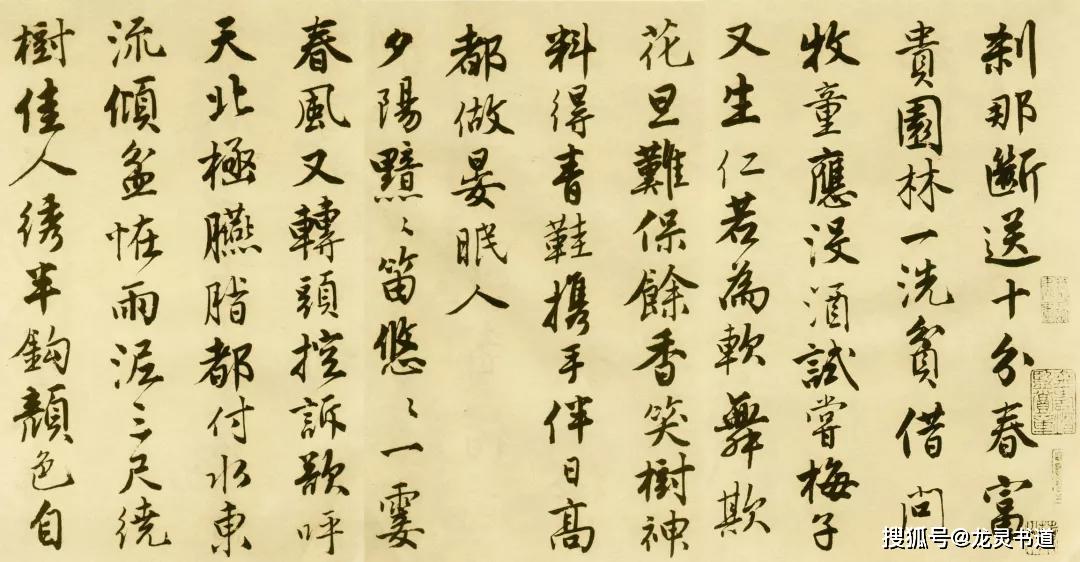 刹那斷送十分春富
貴園林一洗貧借問
牧童應没酒試嘗梅子
又生仁若為軟舞欺
花旦難保餘香笑樹神
料得青鞋携手伴日高
都做晏眠人
夕陽黯〻笛悠〻一霎
春風又轉頭控訴欲呼
天北極臙脂都付水東
流傾盆怪雨泥三尺繞
樹佳人綉半鈎顏色自
搜狐号@龙灵书道